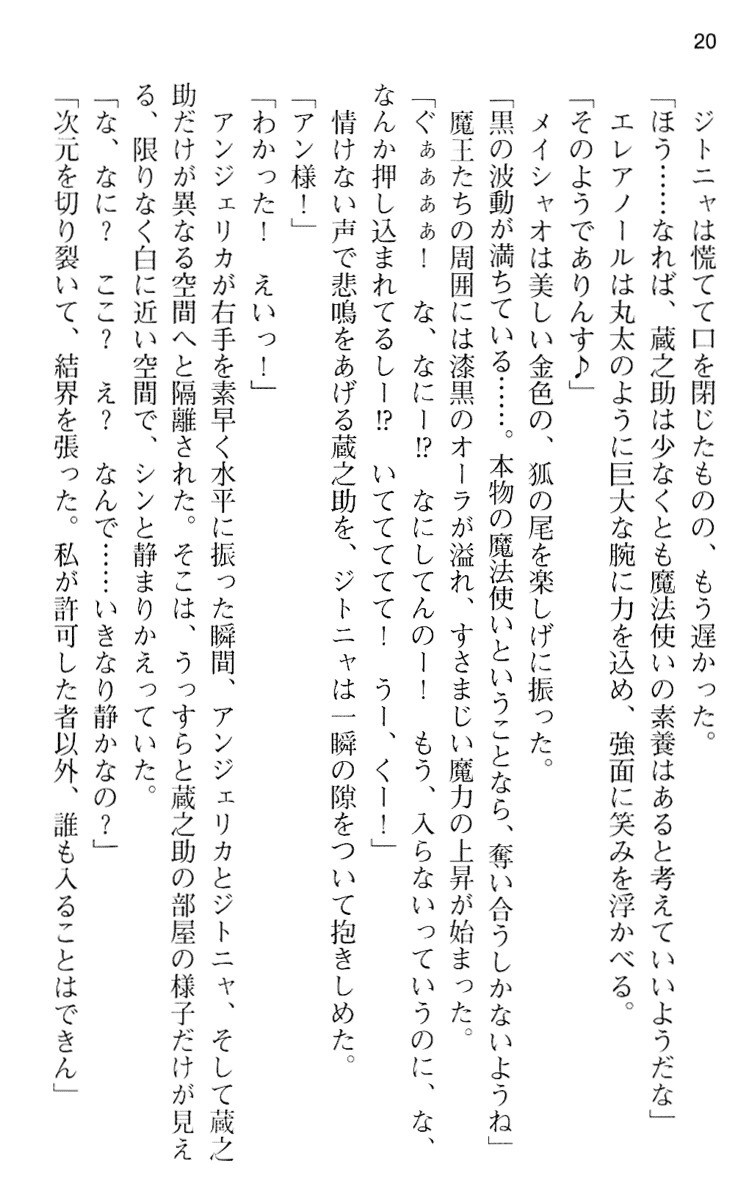 20
ジトニャは慌てて口を閉じたものの、もう遅かった。
「ほう……なれば、蔵之助は少なくとも魔法使いの素養はあると考えていいようだな」
エレアノールは丸太のように巨大な腕に力を込め、強面に笑みを浮かべる。
「そのようでありんす♪」
メイシャオは美しい金色の、狐の尾を楽しげに振った。
「黒の波動が満ちている……。本物の魔法使いということなら、奪い合うしかないようね」
魔王たちの周囲には漆黒のオーラが溢れ、すさまじい魔力の上昇が始まった。
「ぐぁぁぁぁ！　な、なにー!?　なにしてんのー！　もう、入らないっていうのに、な、
なんか押し込まれてるしー!?　いててててて！　うー、くー！」
情けない声で悲鳴をあげる蔵之助を、ジトニャは一瞬の隙をついて抱きしめた。
「アン様！」
「わかった！　えいっ！」
アンジェリカが右手を素早く水平に振った瞬間、アンジェリカとジトニャ、そして蔵之
助だけが異なる空間へと隔離された。そこは、うっすらと蔵之助の部屋の様子だけが見え
る、限りなく白に近い空間で、シンと静まりかえっていた。
「な、なに？　ここ？　え？　なんで……いきなり静かなの？」
「次元を切り裂いて、結界を張った。私が許可した者以外、誰も入ることはできん」